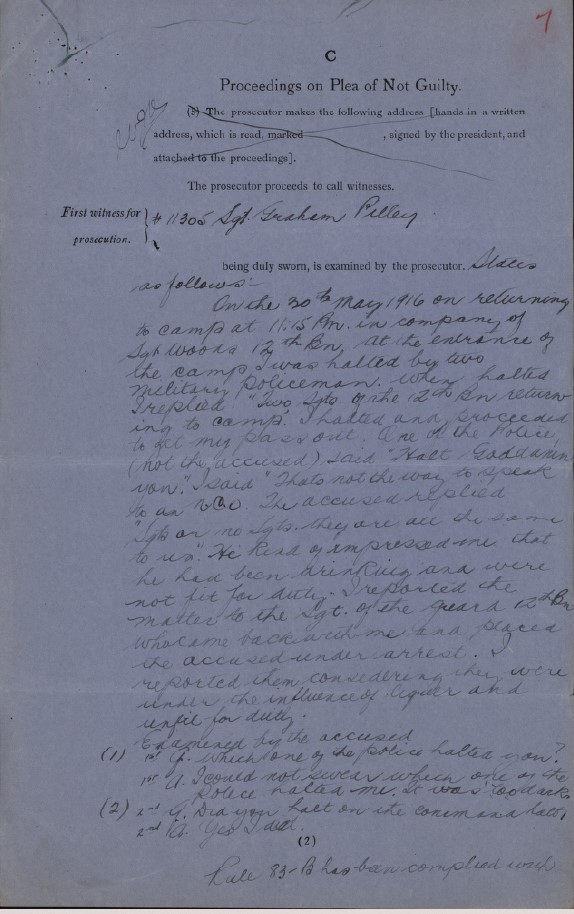 7
C
Proceedings on Plea of Not Guilty.
(5) The prosecutor makes the following address [hands in a written
address, which is read, marked , signed by the president, and
attached to the proceedings].
The prosecutor proceeds to call witnesses.
First witness for
prosecution.
# 11305 Sgt. Graham Pelley
being duly sworn, is examined by the prosecutor. States
as follows:-
On the 30th May 1916 on returning
to camp at 11.15 P.m. in company of
Sgt Woods 12th Bn, At the entrance of
the camp I was halted by two
military policeman. When halted
I replied "Two Sgts of the 12th Bn return-
ing to camp". I halted and proceeded
to get my pass out. One of the Police,
(not the accused) said "Halt, Goddamn
you". I said "Thats not the way to speak
to an NCO. The accused replied
"Sgts or no Sgts. they are all the same
to us". He kind of impressed me that
he had been drinking and were
not fit for duty. I reported the
matter to the Sgt. of the guard 12th Bn
who came back with me and placed
the accused under arrest. I
reported them considering they were
under the influence of liquer and
unfit for duty.
Examined by the accused
(1) 1st Q. Which one of the police halted you?
1st A. I could not swear which one of the
Police halted me, it was too dark
(2) 2nd Q. Did you halt on the command halt,
2nd A. Yes I did.
(2)
Rule 83-B has ban complied with